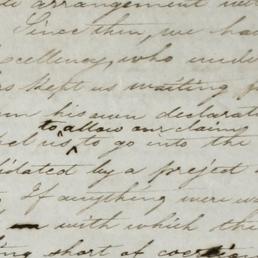 arrangement
Since then, we ha
xcellency, who unde
s kept us waiting
his own declarat
to allow our claim
us to go into the
idated by a project
If anything were w
with which the
ing short of